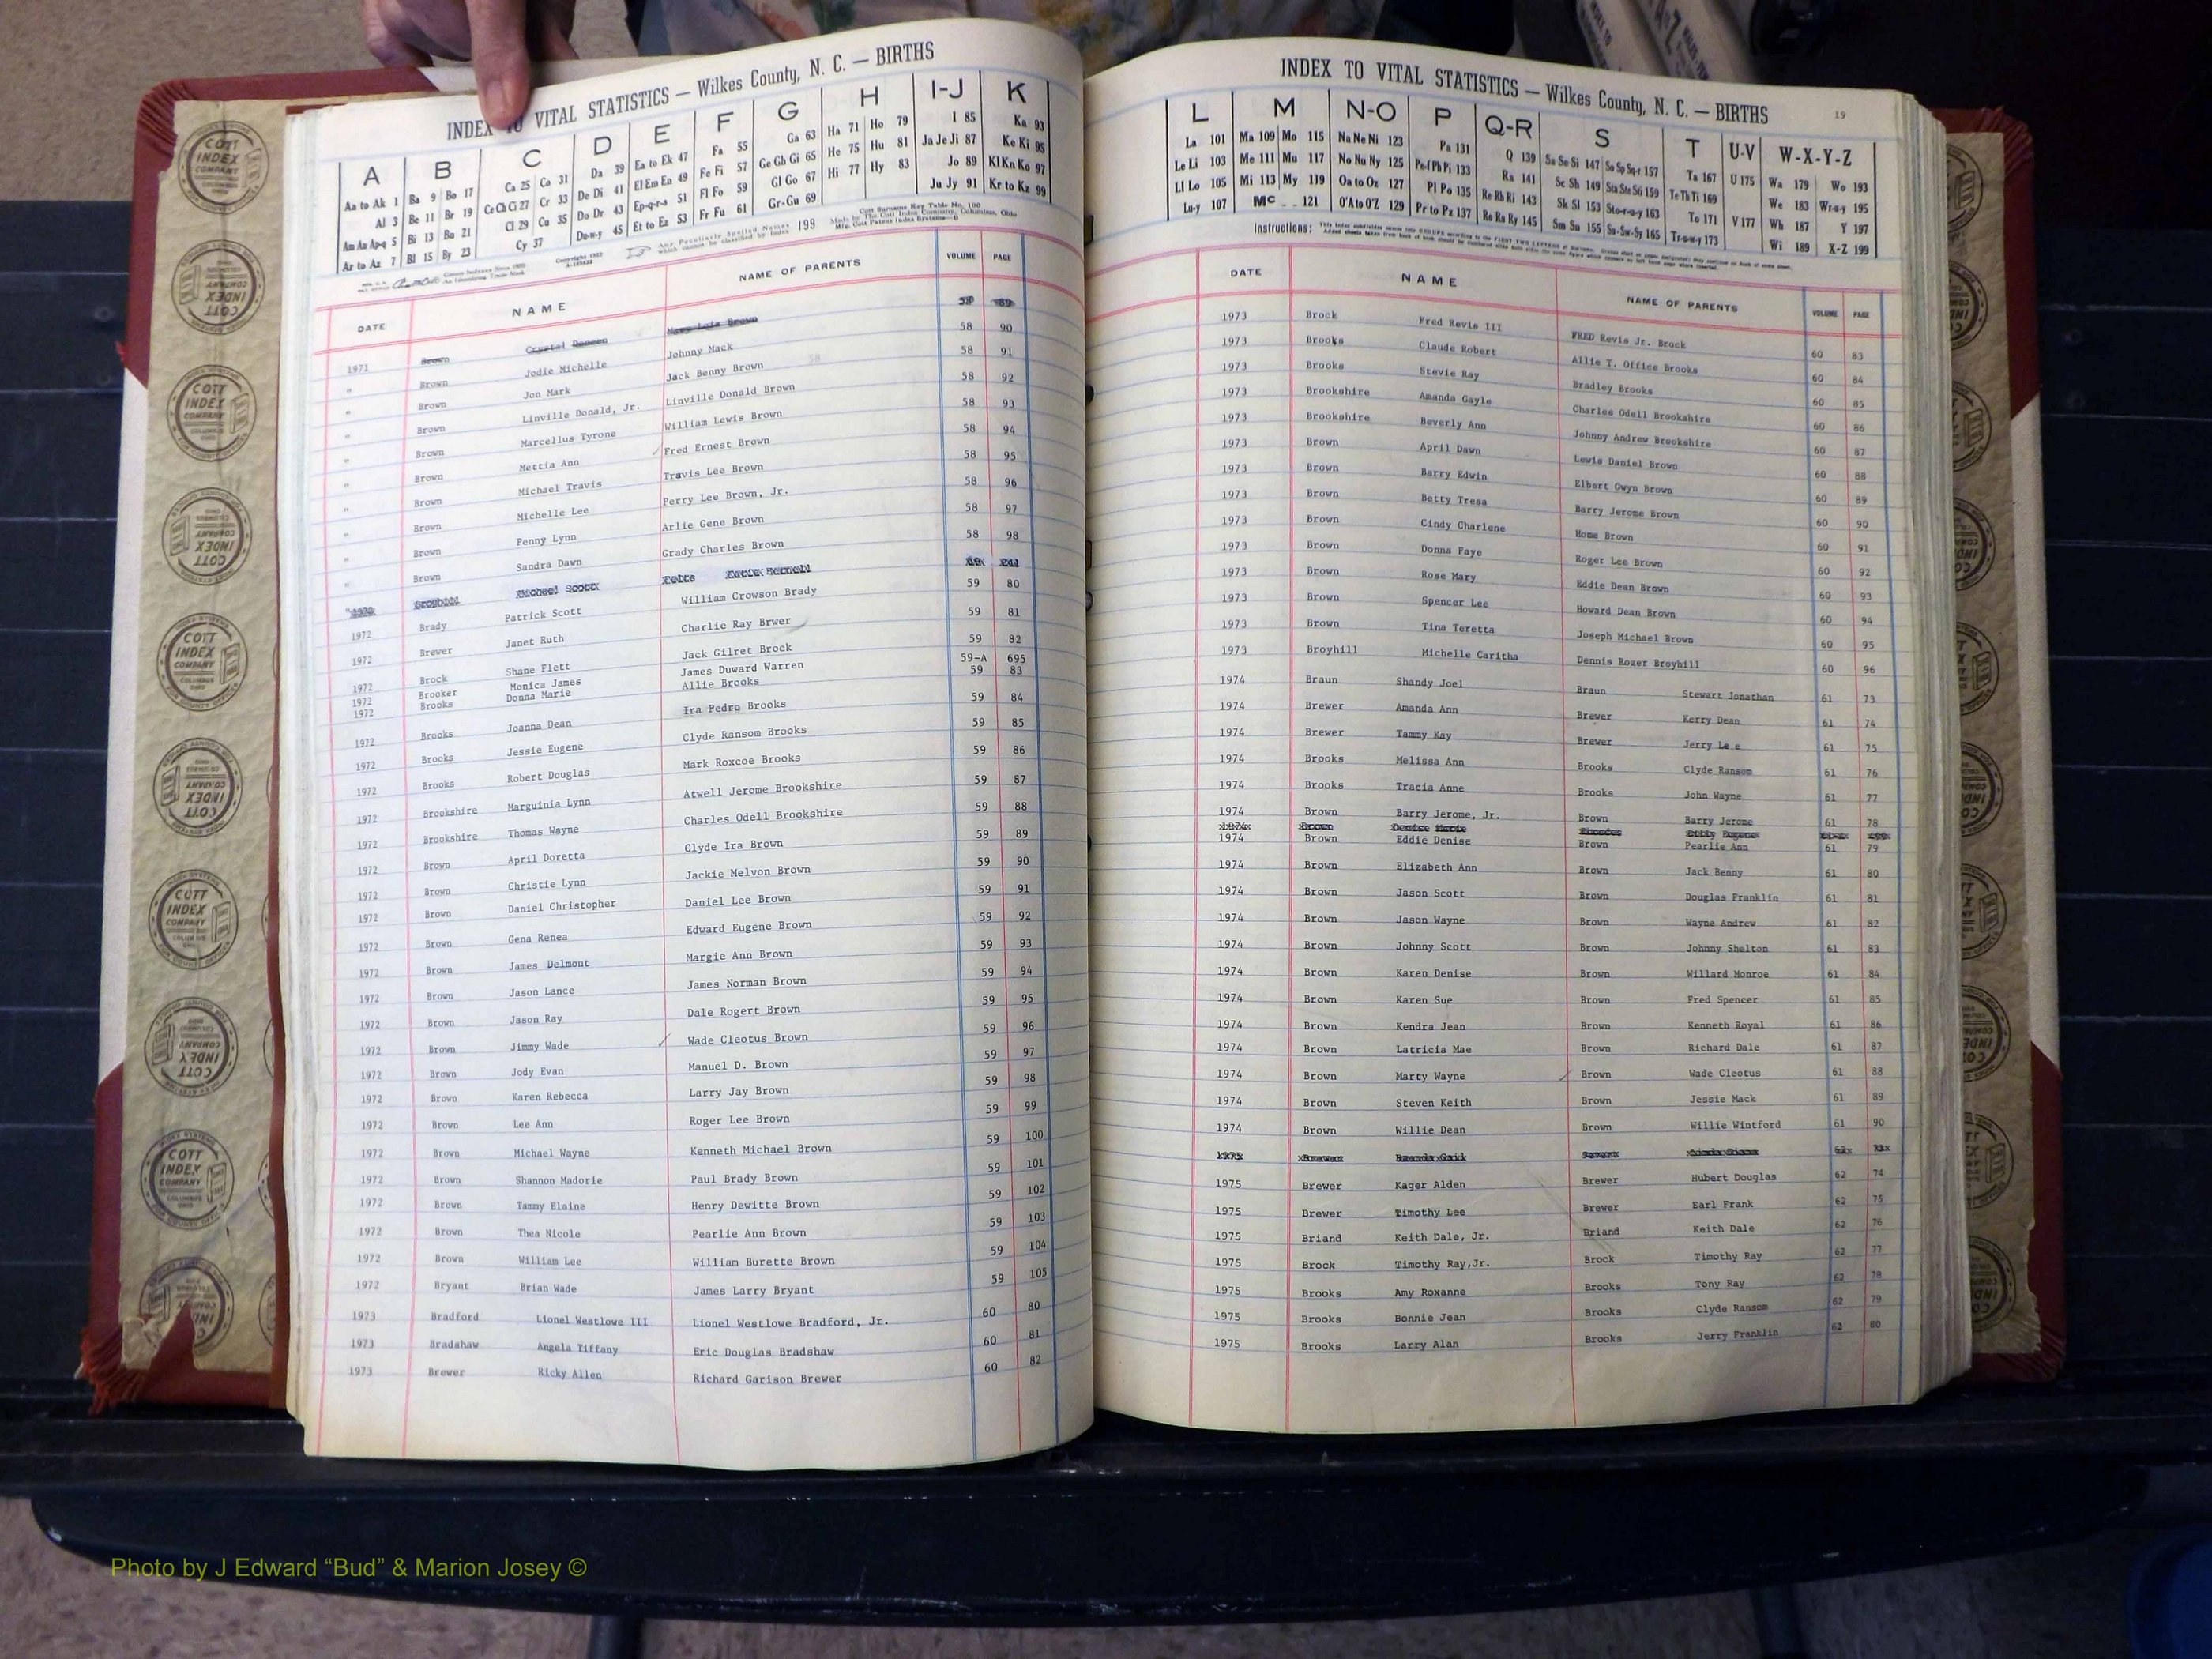 INDEX TO VITAL STATISTICS — Wilkes County, N. C. — BIRTHS
A B C D E F G H I-J K
Aa to Ak 1 Ba 9 Bo 17 Ca 25 Co 31 Da 39 Ea to Ek 47 Fa 55 Ga 63 Ha 71 Ho 79 I 85 Ka 93
Al 3 Be 11 Br 19 Ce Ch Ci 27 Cr 33 De Di 41 El Em En 49 Fe Fi 57 Ge Gh Gi 65 He 75 Hu 81 Ja Je Ji 87 Ke Ki 95
Am An Ap-q 5 Bi 13 Bu 21 Cl 29 Cu 35 Do Dr 43 Ep-q-r-s 51 Fl Fo 59 Gl Go 67 Hi 77 Hy 83 Jo 89 Kl Kn Ko 97
Ar to Az 7 Bl 15 By 23 Cy 37 Du-w-y 45 Et to Ez 53 Fr Fu 61 Gr-Gu 69 Ju Jy 91 Kr to Kz 99
Any Peculiarly Spelled Names which cannot be classified by Index 199
DATE NAME NAME OF PARENTS VOLUME PAGE
1971 Brown Crystal Doneen Mary Lois Brown 58 89
" Brown Jodie Michelle Johnny Mack 58 90
" Brown Jon Mark Jack Benny Brown 58 91
" Brown Linville Donald, Jr. Linville Donald Brown 58 92
" Brown Marcellus Tyrone William Lewis Brown 58 93
" Brown Mettia Ann Fred Ernest Brown 58 94
" Brown Michael Travis Travis Lee Brown 58 95
" Brown Michelle Lee Perry Lee Brown, Jr. 58 96
" Brown Penny Lynn Arlie Gene Brown 58 97
" Brown Sandra Dawn Grady Charles Brown 58 98
1972 Brady Patrick Scott William Crowson Brady 59 80
1972 Brewer Janet Ruth Charlie Ray Brwer 59 81
1972 Brock Shane Flett Jack Gilret Brock 59 82
1972 Brooker Monica James James Duward Warren 59-A 695
1972 Brooks Donna Marie Allie Brooks 59 83
1972 Brooks Joanna Dean Ira Pedro Brooks 59 84
1972 Brooks Jessie Eugene Clyde Ransom Brooks 59 85
1972 Brooks Robert Douglas Mark Roxcoe Brooks 59 86
1972 Brookshire Marguinia Lynn Atwell Jerome Brookshire 59 87
1972 Brookshire Thomas Wayne Charles Odell Brookshire 59 88
1972 Brown April Doretta Clyde Ira Brown 59 89
1972 Brown Christie Lynn Jackie Melvon Brown 59 90
1972 Brown Daniel Christopher Daniel Lee Brown 59 91
1972 Brown Gena Renea Edward Eugene Brown 59 92
1972 Brown James Delmont Margie Ann Brown 59 93
1972 Brown Jason Lance James Norman Brown 59 94
1972 Brown Jason Ray Dale Rogert Brown 59 95
1972 Brown Jimmy Wade Wade Cleotus Brown 59 96
1972 Brown Jody Evan Manuel D. Brown 59 97
1972 Brown Karen Rebecca Larry Jay Brown 59 98
1972 Brown Lee Ann Roger Lee Brown 59 99
1972 Brown Michael Wayne Kenneth Michael Brown 59 100
1972 Brown Shannon Madorie Paul Brady Brown 59 101
1972 Brown Tammy Elaine Henry Dewitte Brown 59 102
1972 Brown Thea Nicole Pearlie Ann Brown 59 103
1972 Brown William Lee William Burette Brown 59 104
1972 Bryant Brian Wade James Larry Bryant 59 105
1973 Bradford Lionel Westlowe III Lionel Westlowe Bradford, Jr. 60 80
1973 Bradshaw Angela Tiffany Eric Douglas Bradshaw 60 81
1973 Brewer Ricky Allen Richard Garison Brewer 60 82
INDEX TO VITAL STATISTICS — Wilkes County, N. C. — BIRTHS 19
L M N-O P Q-R S T U-V W-X-Y-Z
La 101 Ma 109 Mo 115 Na Ne Ni 123 Pa 131 Q 139 Sa Se Si 147 So Sp Sq-r 157 Ta 167 U 175 Wa 179 Wo 193
Le Li 103 Me 111 Mu 117 No Nu Ny 125 Pe-f Ph Pi 133 Ra 141 Sc Sh 149 Sta Ste Sti 159 Te Th Ti 169 We 183 Wr-u-y 195
Ll Lo 105 Mi 113 My 119 Oa to Oz 127 Pl Po 135 Re Rh Ri 143 Sk Sl 153 Sto-r-u-y 163 To 171 V 177 Wh 187 Y 197
Lu-y 107 Mc 121 O'A to O'Z 129 Pr to Pz 137 Ro Ru Ry 145 Sm Sn 155 Su-Sw-Sy 165 Tr-u-w-y 173 Wi 189 X-Z 199
Instructions:
DATE NAME NAME OF PARENTS VOLUME PAGE
1973 Brock Fred Revis III FRED Revis Jr. Brock 60 83
1973 Brooks Claude Robert Allie T. Office Brooks 60 84
1973 Brooks Stevie Ray Bradley Brooks 60 85
1973 Brookshire Amanda Gayle Charles Odell Brookshire 60 86
1973 Brookshire Beverly Ann Johnny Andrew Brookshire 60 87
1973 Brown April Dawn Lewis Daniel Brown 60 88
1973 Brown Barry Edwin Elbert Gwyn Brown 60 89
1973 Brown Betty Tresa Barry Jerome Brown 60 90
1973 Brown Cindy Charlene Home Brown 60 91
1973 Brown Donna Faye Roger Lee Brown 60 92
1973 Brown Rose Mary Eddie Dean Brown 60 93
1973 Brown Spencer Lee Howard Dean Brown 60 94
1973 Brown Tina Teretta Joseph Michael Brown 60 95
1973 Broyhill Michelle Caritha Dennis Rozer Broyhill 60 96
1974 Braun Shandy Joel Braun Stewart Jonathan 61 73
1974 Brewer Amanda Ann Brewer Kerry Dean 61 74
1974 Brewer Tammy Kay Brewer Jerry Le e 61 75
1974 Brooks Melissa Ann Brooks Clyde Ransom 61 76
1974 Brooks Tracia Anne Brooks John Wayne 61 77
1974 Brown Barry Jerome, Jr. Brown Barry Jerome 61 78
1974 Brown Eddie Denise Brown Pearlie Ann 61 79
1974 Brown Elizabeth Ann Brown Jack Benny 61 80
1974 Brown Jason Scott Brown Douglas Franklin 61 81
1974 Brown Jason Wayne Brown Wayne Andrew 61 82
1974 Brown Johnny Scott Brown Johnny Shelton 61 83
1974 Brown Karen Denise Brown Willard Monroe 61 84
1974 Brown Karen Sue Brown Fred Spencer 61 85
1974 Brown Kendra Jean Brown Kenneth Royal 61 86
1974 Brown Latricia Mae Brown Richard Dale 61 87
1974 Brown Marty Wayne Brown Wade Cleotus 61 88
1974 Brown Steven Keith Brown Jessie Mack 61 89
1974 Brown Willie Dean Brown Willie Wintford 61 90
1975 Brewer Kager Alden Brewer Hubert Douglas 62 74
1975 Brewer Timothy Lee Brewer Earl Frank 62 75
1975 Briand Keith Dale, Jr. Briand Keith Dale 62 76
1975 Brock Timothy Ray,Jr. Brock Timothy Ray 62 77
1975 Brooks Amy Roxanne Brooks Tony Ray 62 78
1975 Brooks Bonnie Jean Brooks Clyde Ransom 62 79
1975 Brooks Larry Alan Brooks Jerry Franklin 62 80
COTT INDEX COMPANY
Photo by J Edward “Bud” & Marion Josey ©